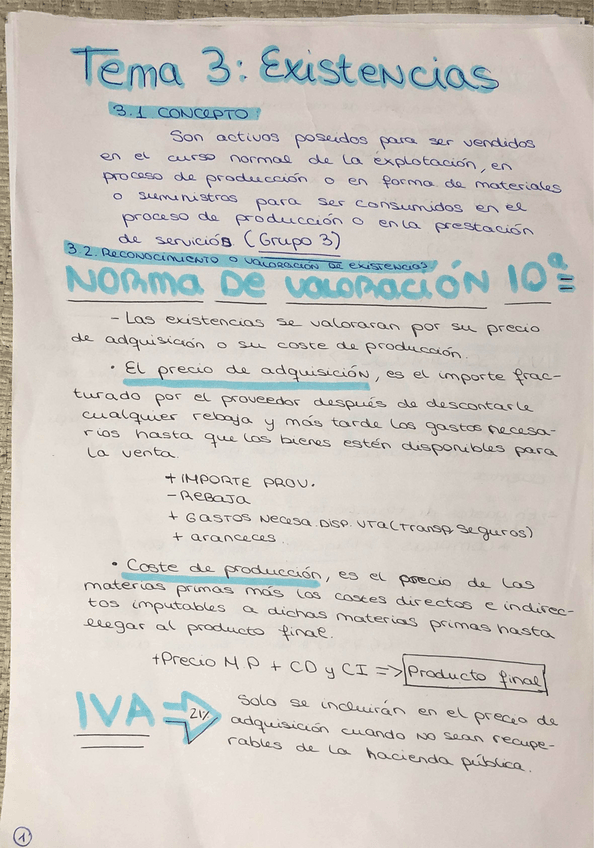 Tema 3: Existencias
3.1 CONCEPTO
Son activos poseidos para ser vendidos
en el curso normal de la explotación, en
proceso de producción o en forma de materiales
o suministros para ser consumidos en el
proceso de producción o en la prestación
de servicios (Grupo 3)
3.2. RECONOCIMIENTO O VALORACIÓN DE EXISTENCIAS
NORMA DE VALORACIÓN 10ª
- Las existencias se valoraran por su precio
de adquisición o su coste de producción.
• El precio de adquisición, es el importe frac-
turado por el proveedor después de descontarle
cualquier rebaja y más tarde los gastos necesa-
rios hasta que los bienes estén disponibles para
la venta.
+ IMPORTE PROV.
- REBAJA
+ GASTOS NECESA. DISP. VTA (TRANSP, seguros)
+ aranceces
• Coste de producción, es el precio de las
materias primas más los costes directos e indirec-
tos imputables a dichas materias primas hasta
llegar al producto final.
+Precio M.P + CD y CI => Producto final
IVA 21% Solo se incluirán en el precio de
adquisición cuando NO sean recupe-
rables de la hacienda pública.
1